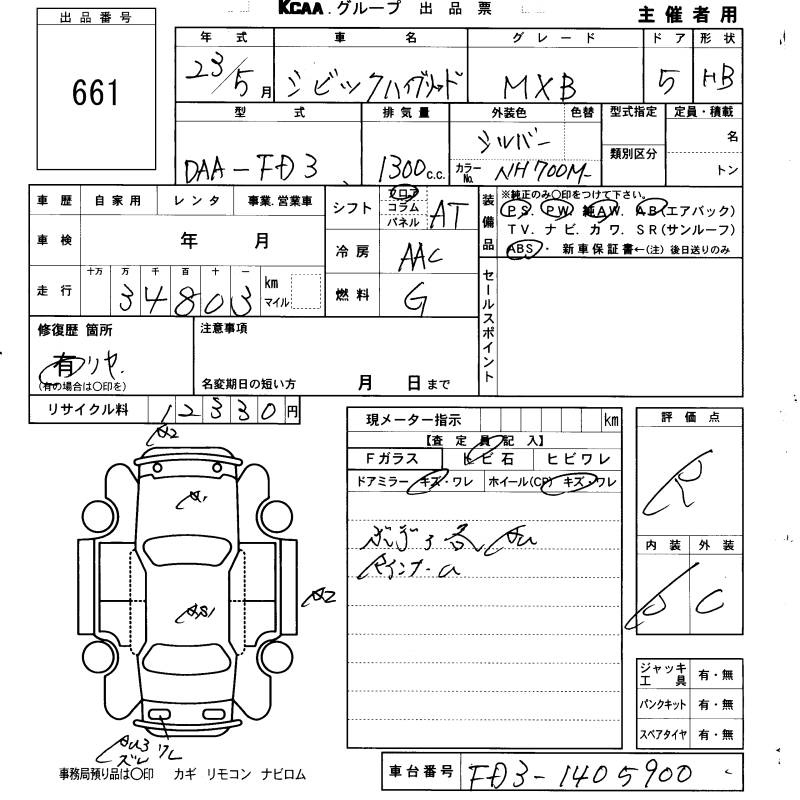 KCAA.グループ 出品票 主催者用
出品番号
661
年式 車名 グレード ドア 形状
23/5月 シビックハイブリッド MXB 5 HB
型式 排気量 外装色 色替 型式指定 定員・積載
DAA-FD3 1300c.c. シルバー 類別区分 名
カラーNo. NH700M トン
車歴 自家用 レンタ 事業.営業車
車検 年 月
走行 十万 万 千 百 十 一
34803 km マイル
シフト フロア コラム パネル AT
冷房 AAC
燃料 G
装備品 ※純正のみ〇印をつけて下さい。
PS. PW. 純AW. AB(エアバック)
TV. ナビ. カワ. SR(サンルーフ)
ABS・ 新車保証書←(注) 後日送りのみ
セールスポイント
修復歴 箇所 注意事項
有 リヤ.
(有の場合は〇印を) 名変期日の短い方 月 日まで
リサイクル料 12330円
現メーター指示 km
【査定員記入】
Fガラス トビ石 ヒビワレ
ドアミラー キズ・ワレ ホイール(CP) キズ・ワレ
評価点
R
内装 外装
C
A2
A1
A2
ズレ ワレ
ジャッキ工具 有・無
パンクキット 有・無
スペアタイヤ 有・無
事務局預り品は〇印 カギ リモコン ナビロム
車台番号 FD3-1405900